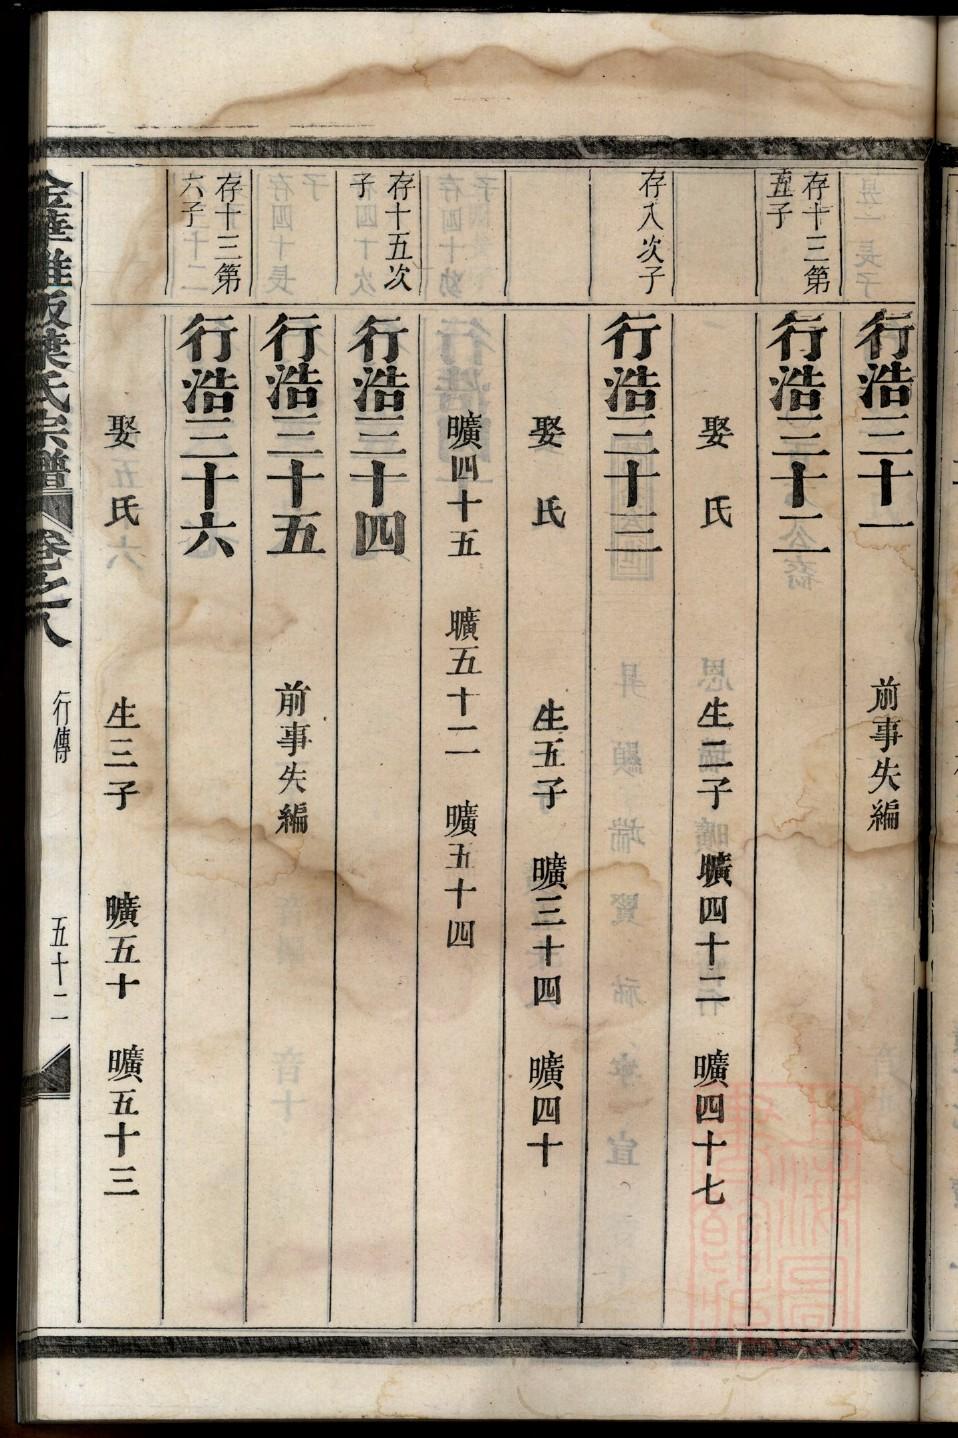 行浩三十一
前事失編
存十三第
五子
行浩三十二
娶 氏 生二子 曠四十二 曠四十七
存八次子
行浩三十三
娶 氏 生五子 曠三十四 曠四十
曠四十五 曠五十二 曠五十四
存十五次
子
行浩三十四
行浩三十五
前事失編
存十三第
六子
行浩三十六
娶 氏 生三子 曠五十 曠五十三
葉氏宗譜 卷之八 行傳 五十二